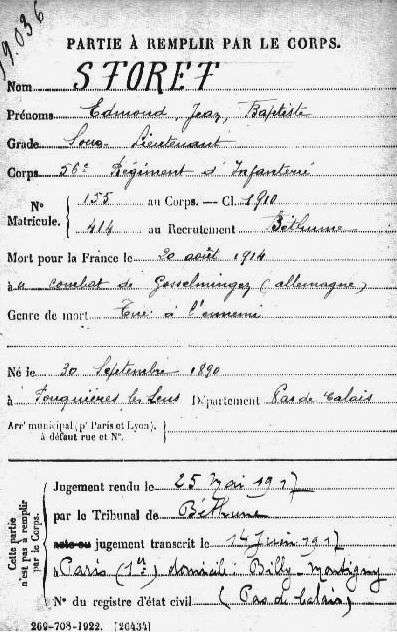 19.036
PARTIE À REMPLIR PAR LE CORPS.
Nom STORET
Prénoms Edmond, Jean, Baptiste
Grade Sous-Lieutenant
Corps 56e Régiment d'Infanterie
N° Matricule. { 155 au Corps. — Cl. 1910
414 au Recrutement Béthune
Mort pour la France le 20 août 1914
à u combat de Gosselmingen (allemagne)
Genre de mort Tué à l'ennemi
Né le 30 Septembre 1890
à Fouquières les Lens Département Pas de Calais
Arrt municipal (pr Paris et Lyon),
à défaut rue et N°.
Cette partie n'est pas à remplir par le Corps.
Jugement rendu le 25 Mai 1917
par le Tribunal de Béthune
acte ou jugement transcrit le 14 Juin 1917
à Paris (1er) domicile : Billy-Montigny
N° du registre d'état civil (Pas de Calais)
269-708-1922. [26434]